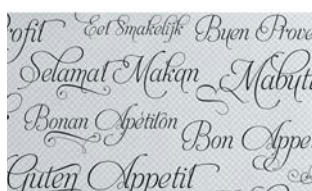 ofit Eet Smakelijk Buen Prove
Selamat Makan Mabuh
Bonan Apétitôn Bon Appe
Guten Appetit